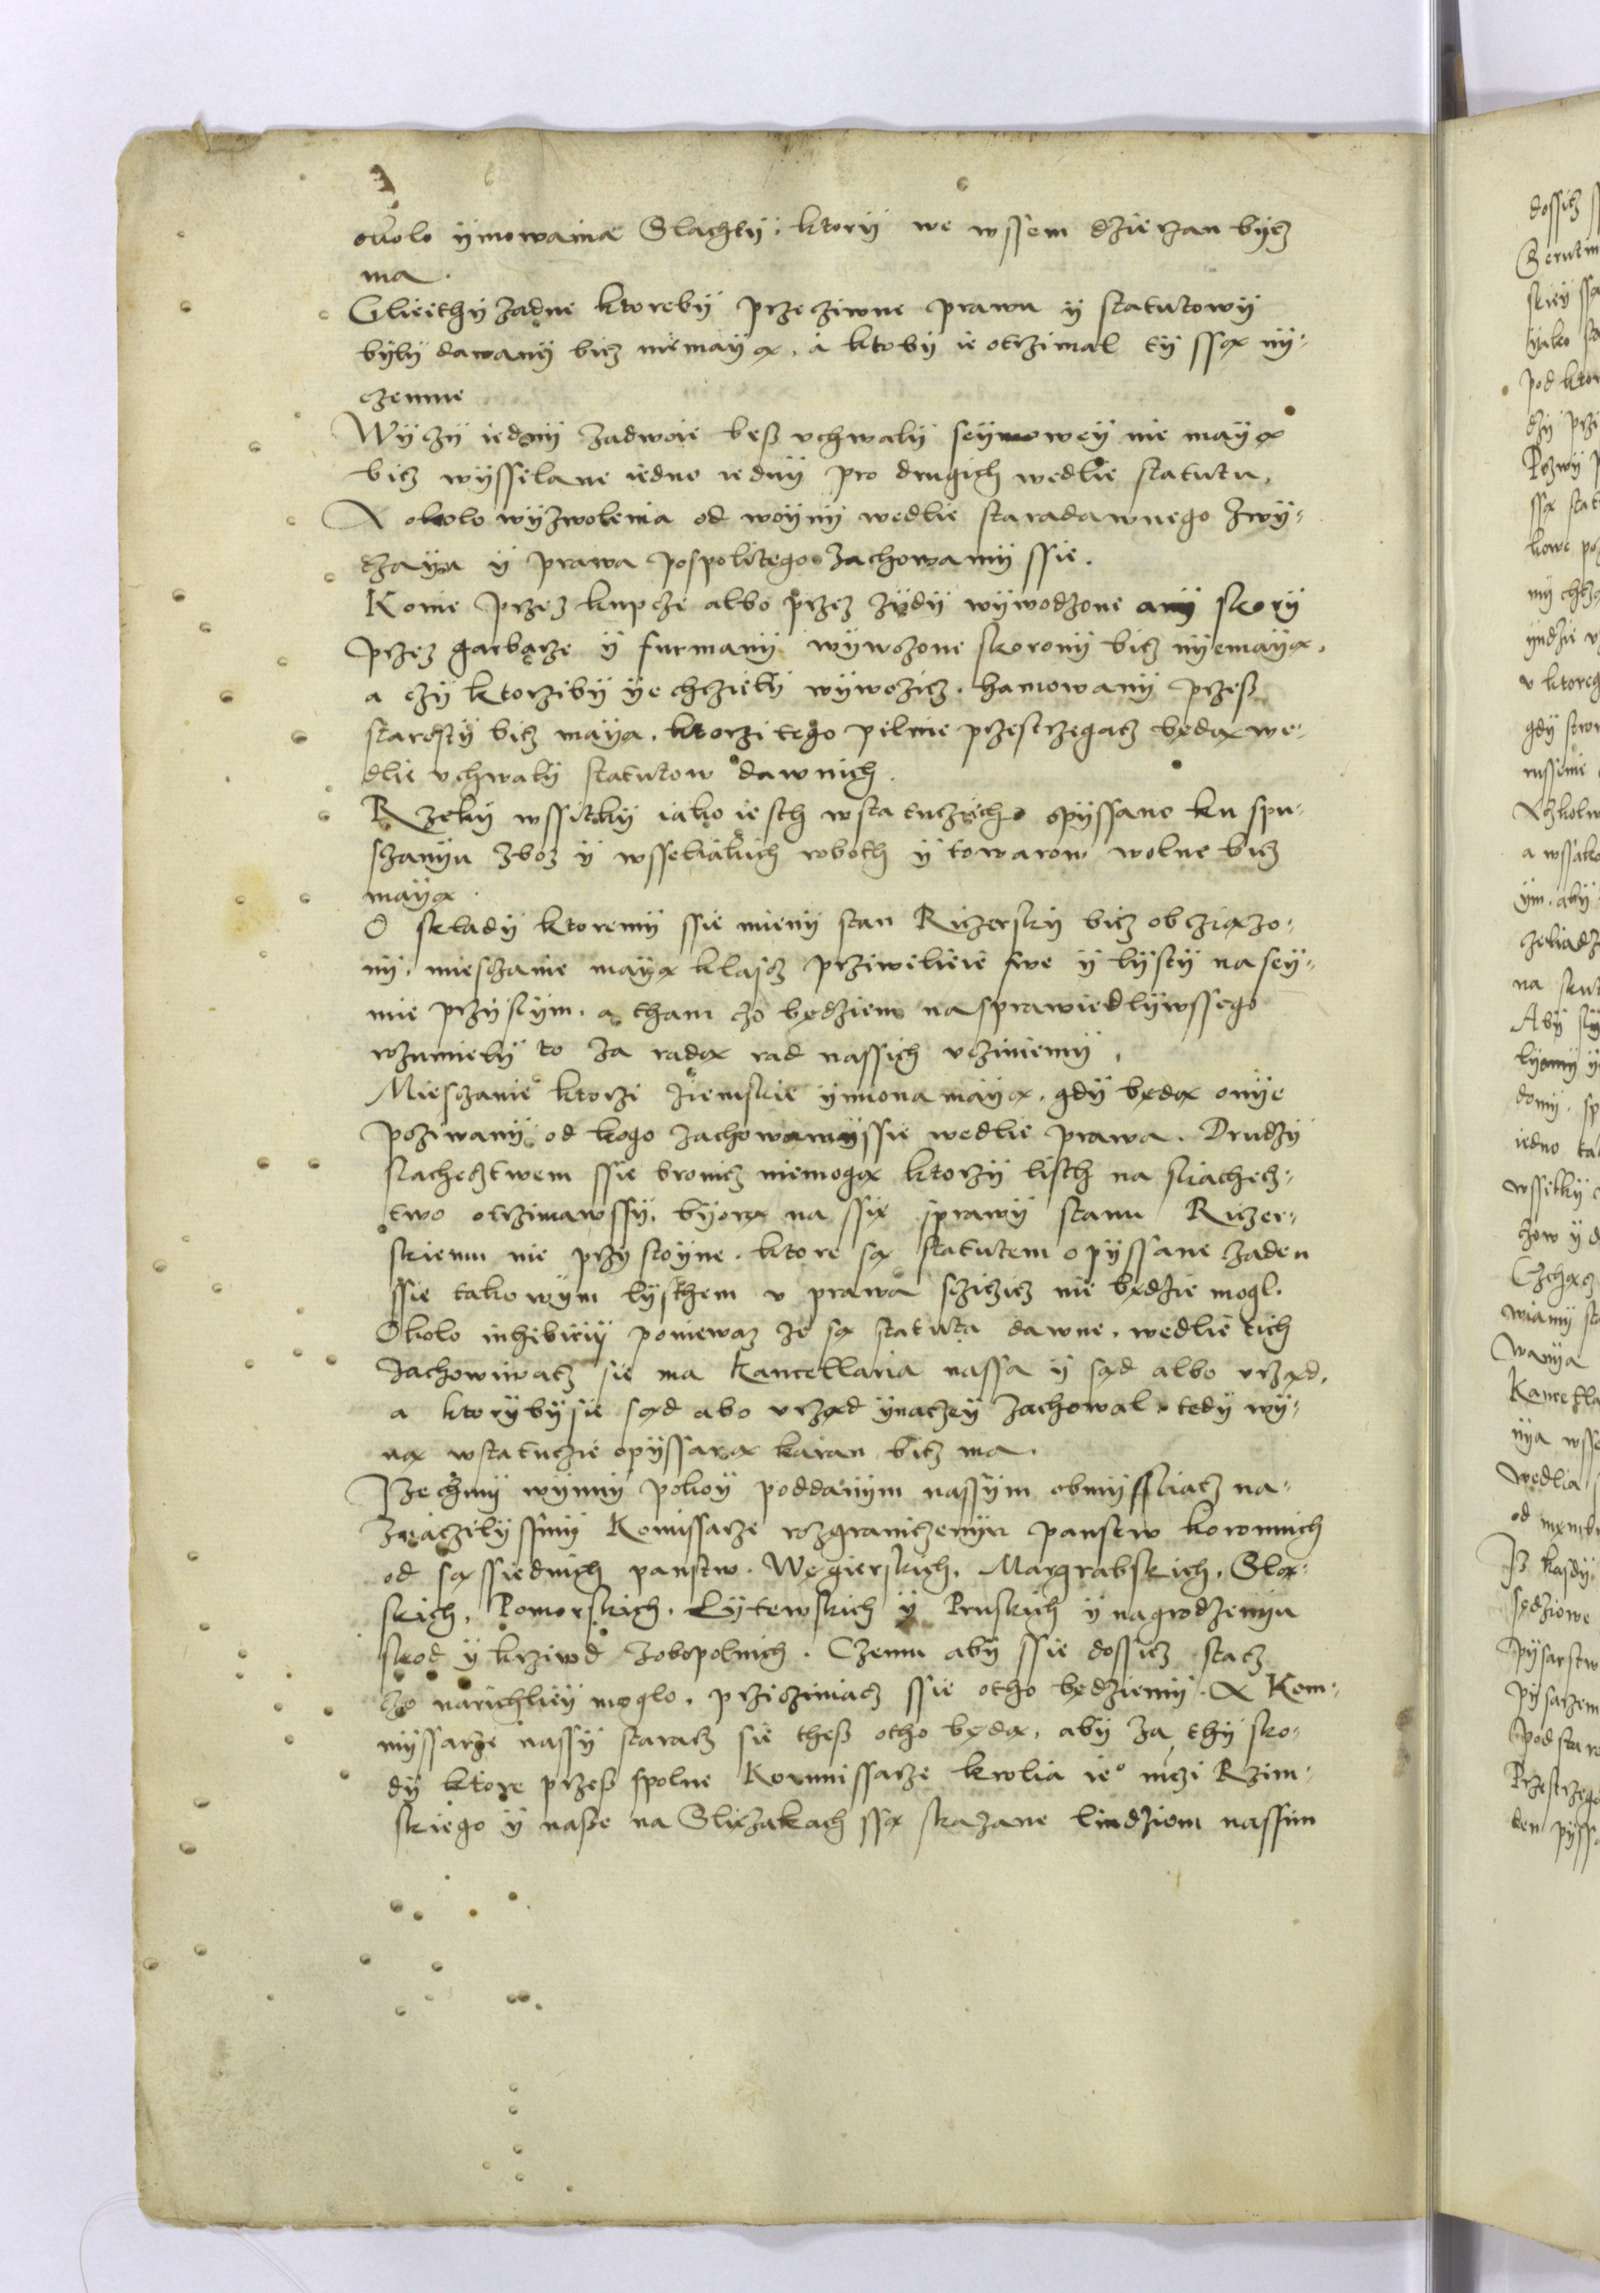 około ymowania Slachty, ktory we wssem dzierzan bycz
ma.
Glieithy zadne ktoreby przecziwne prawu y statutowy
byly dawany bicz niemayą, a ktoby ie otrzimal ty ssą ny-
czemne
Wyczy iedny zadwoie bess vchwaly seymowey nie mayą
bicz wysselane iedno iedny pro drugich wedlie statutu,
A okolo wyzwolenia od woyny wedlie staradawnego zwy-
czayu y prawa pospolitego zachowamy ssie.
Konie przez kupcze albo przez zydy wywodzone any skory
przez garbarze y furmany wywozone skorony bicz nyemayą,
a czy ktorziby ye chczieli wywozicz, hamowany przess
starosty bicz mayą, ktorzi tego pilnie przestrzegacz będą we-
dlie vchwaly statutow dawnich.
Rzeky wssitky iako iesth wstatucziech opyssano ku spu-
sczanyu zboz y wsseliakich roboth y towarow wolne bicz
mayą.
O sklady ktoremy ssie mieny stan Riczersky bicz obcziązo-
ny, miesczanie mayą klascz przywilieie swe y lysty na sey-
mie przyslym, a tham czo będziem nasprawiedlywssego
rozumiely to za radą rad nassich vczyniemy,
Miesczanie ktorzi ziemskie ymiona mayą, gdy będą onye
pozwany od kogo zachowamyssie wedlie prawa. Drudzy
slachecztwem ssie bronicz niemogą ktorzy listh na sliachecz-
two otrzimawssy, byorą na ssię sprawy stanu Riczer-
skiemu nie przystoyne, ktore są statutem opyssane zaden
ssie takowym lysthem v prawa sczicicz nie będzie mogl.
Okolo inhibiciy poniewaz ze są statuta dawne, wedlie tich
zachowiwacz sie ma Kancellaria nassa y sąd albo vrząd,
a ktorybysie sąd abo vrząd ynaczey zachowal, tedy wy-
ną wstatuczie opyssaną karan bicz ma.
Izechmy wynny pokoy poddanym nassym obmyssliacz na-
znaczilyssmy Komissarze rozgraniczenyu panstw koronnich
od sąssiednich panstw. Węgierskich, Margrabskich, Slą-
skich, Pomorskich, Lytewskich y Pruskich y nagrodzenyu
skod y krziwd zobopolnich. Czemu aby ssie dossicz stacz
czo narichliey moglo, przicziniacz ssie otho będziemy. A Kom-
myssarze nassy staracz sie thess otho będą, aby za thy sko-
dy ktore przess spolne Kommissarze krolia ie° mczi Rzim-
skiego y nasse na Sliezakach ssą skazane liudziom nassim